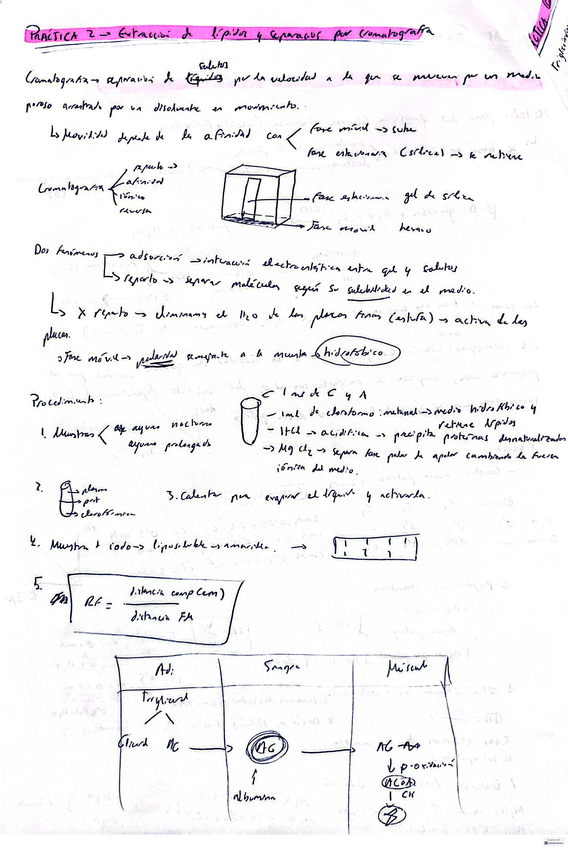 PRÁCTICA 2 → Extracción de lípidos y separación por cromatografía
solutos
Cromatografía → separación de líquidos por la velocidad a la que se mueven por un medio
poroso arrastrado por un disolvente en movimiento.
↳ Movilidad depende de la afinidad con
Fase móvil → sube
Fase estacionaria (sílice) → se retiene
Cromatografía
reparto →
afinidad
iónico
reversa
Fase estacionaria gel de sílica
Fase móvil hexano
Dos fenómenos
→ adsorción → interacción electrostática entre gel y solutos
→ reparto → separar moléculas según su solubilidad en el medio.
↳ X reparto → eliminamos el H2O de las placas finas (estufa) → activa de las
placas.
→ Fase móvil → polaridad semejante a la muestra → hidrofóbico.
Procedimiento:
1. Muestras
ayuno nocturno
ayuno prolongado
1 ml de C y A
- 1 ml de cloroformo:metanol → medio hidrofóbico y
retiene lípidos
- HCl → acidifica → precipita proteínas desnaturalizadas
→ MgCl2 → separa fase polar de apolar cambiando la fuerza
iónica del medio.
2.
→ plasma
→ prot
→ clorofórmica
3. Calentar para evaporar el líquido y activarla.
4. Muestra + iodo → liposoluble → amarillo. →
5.
RF = distancia comp (cm)
distancia FM
Adi.
Sangre
Músculo
Triglicérid
Glicerol AG → AG → AG
albúmina
β-oxidación
ACoA
CK